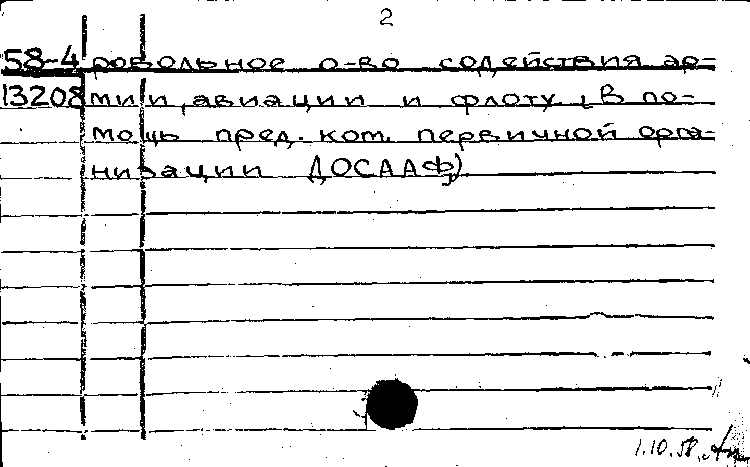 2
58-4 ровольное о-во содействия ар-
13208 мии, авиации и флоту. В по-
мощь пред. ком. первичной орга-
низации ДОСААФ).
1.10.58.